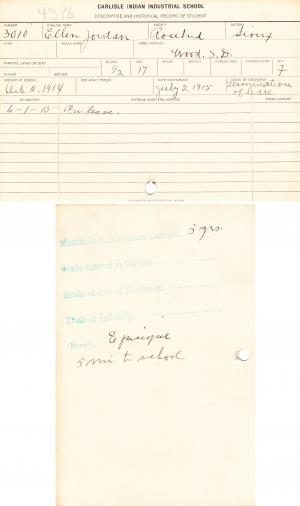 4396
CARLISLE INDIAN INDUSTRIAL SCHOOL
DESCRIPTIVE AND HISTORICAL RECORD OF STUDENT
NUMBER ENGLISH NAME AGENCY NATION
3010 Ellen Jordan Rosebud Sioux
BAND INDIAN NAME HOME ADDRESS
Wood, S.D.
PARENTS LIVING OR DEAD BLOOD AGE HEIGHT WEIGHT FORCED INSP. FORCED EXPR. SEX
FATHER MOTHER 1/2 17 F
ARRIVED AT SCHOOL FOR WHAT PERIOD DATE DISCHARGED CAUSE OF DISCHARGE
Oct. 10, 1914 July 2, 1915 Termination of leave
TO COUNTRY PATRONS NAME AND ADDRESS
6-1-15 On leave.
Months in school before Carlisle, 5 yrs.
Grade entered at Carlisle,
Grade at date of Discharge,
Trade or Industry,
Church, Episcopal
5 mi to school